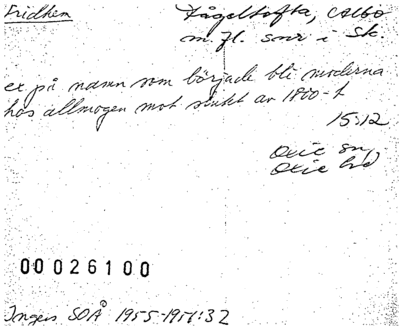 Fridhem
Fågeltofta, Albo
m. fl. snr i Sk.
ex. på namn som började bli moderna
hos allmogen mot slutet av 1800-t
15:12
Oxie sn,
Oxie hd
00026100
Ingers SOÅ 1955-1957:32